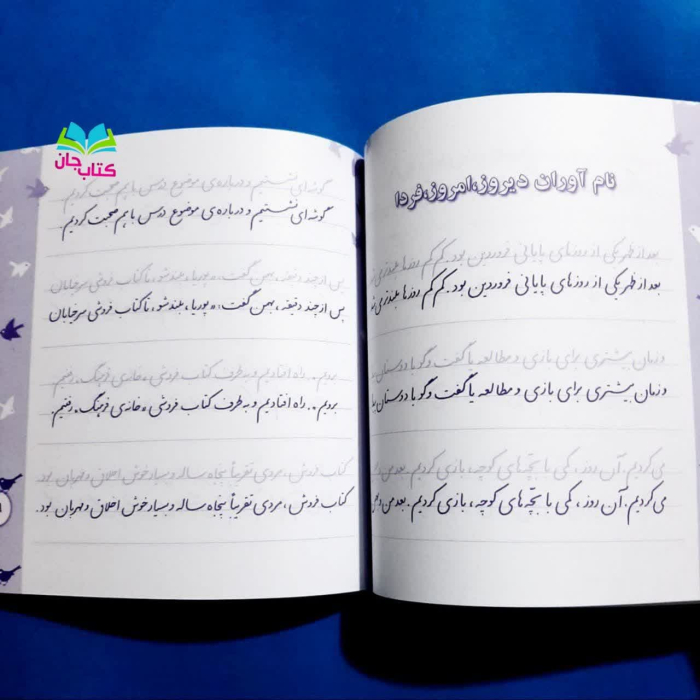 کتاب
جان
نام آوران دیروز،امروز،فردا
بعد از ظهر یکی از روزهای پایانی فروردین بود. کم کم روزها بلندتری
بعد از ظهر یکی از روزهای پایانی فروردین بود. کم کم روزها بلندتری
و زمان بیشتری برای بازی و مطالعه یا گفت و گو با دوستان
و زمان بیشتری برای بازی و مطالعه یا گفت و گو با دوستان
می کردیم. آن روز، کمی با بچّه های کوچه، بازی کردیم. بعد من و
می کردیم. آن روز، کمی با بچّه های کوچه، بازی کردیم. بعد من و
گوشه ای نشستیم و درباره ی موضوع درس با هم صحبت کردیم
گوشه ای نشستیم و درباره ی موضوع درس با هم صحبت کردیم
پس از چند دقیقه، بهمن گفت: «پوریا، بلند شو، تا کتاب فروشی سر خیابان
پس از چند دقیقه، بهمن گفت: «پوریا، بلند شو، تا کتاب فروشی سر خیابان
برویم». راه افتادیم و به طرف کتاب فروشی «خانه ی فرهنگ» رفتیم.
برویم». راه افتادیم و به طرف کتاب فروشی «خانه ی فرهنگ» رفتیم.
کتاب فروش، مردی تقریباً پنجاه ساله و بسیار خوش اخلاق و مهربان بود.
کتاب فروش، مردی تقریباً پنجاه ساله و بسیار خوش اخلاق و مهربان بود.